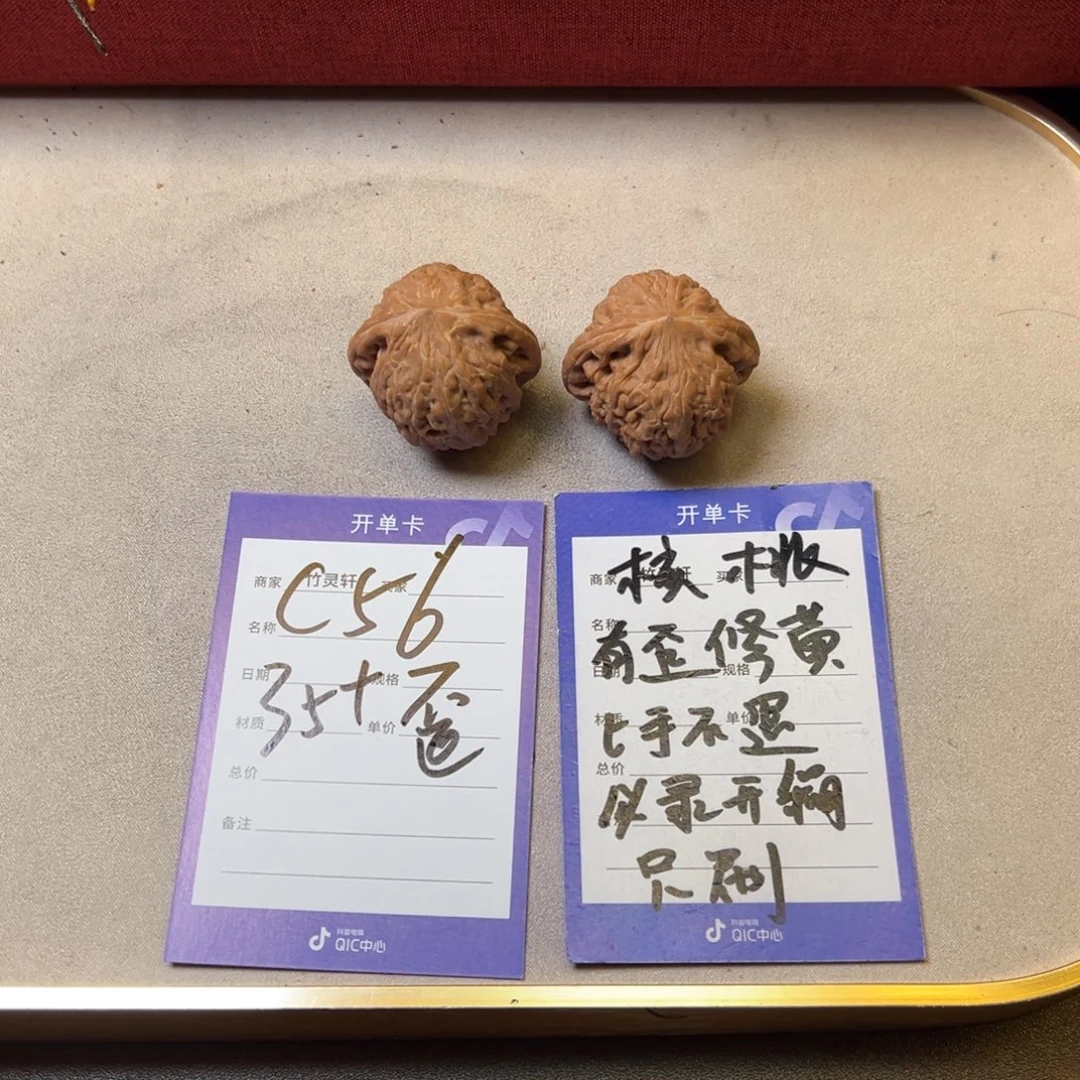 开单卡
商家 竹灵轩 买家
C56
名称
日期 规格
35+歪
材质 单价
总价
备注
抖音电商
QIC中心
开单卡
商家 竹灵轩 买家
核桃
名称
有歪修黄
日期 规格
上手不退
材质 单价
总价
必录开编
只刷
抖音电商
QIC中心